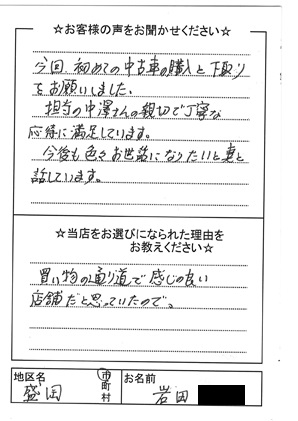 ☆お客様の声をお聞かせください☆
今回、初めての中古車の購入と下取り
をお願いしました。
担当の中澤さんの親切で丁寧な
応待に満足しています。
今後も色々お世話になりたいと妻と
話しています。
☆当店をお選びになられた理由を
お教えください☆
買い物の通り道で感じの良い
店舗だと思っていたので。
地区名
盛岡
市
町
村
お名前
岩田